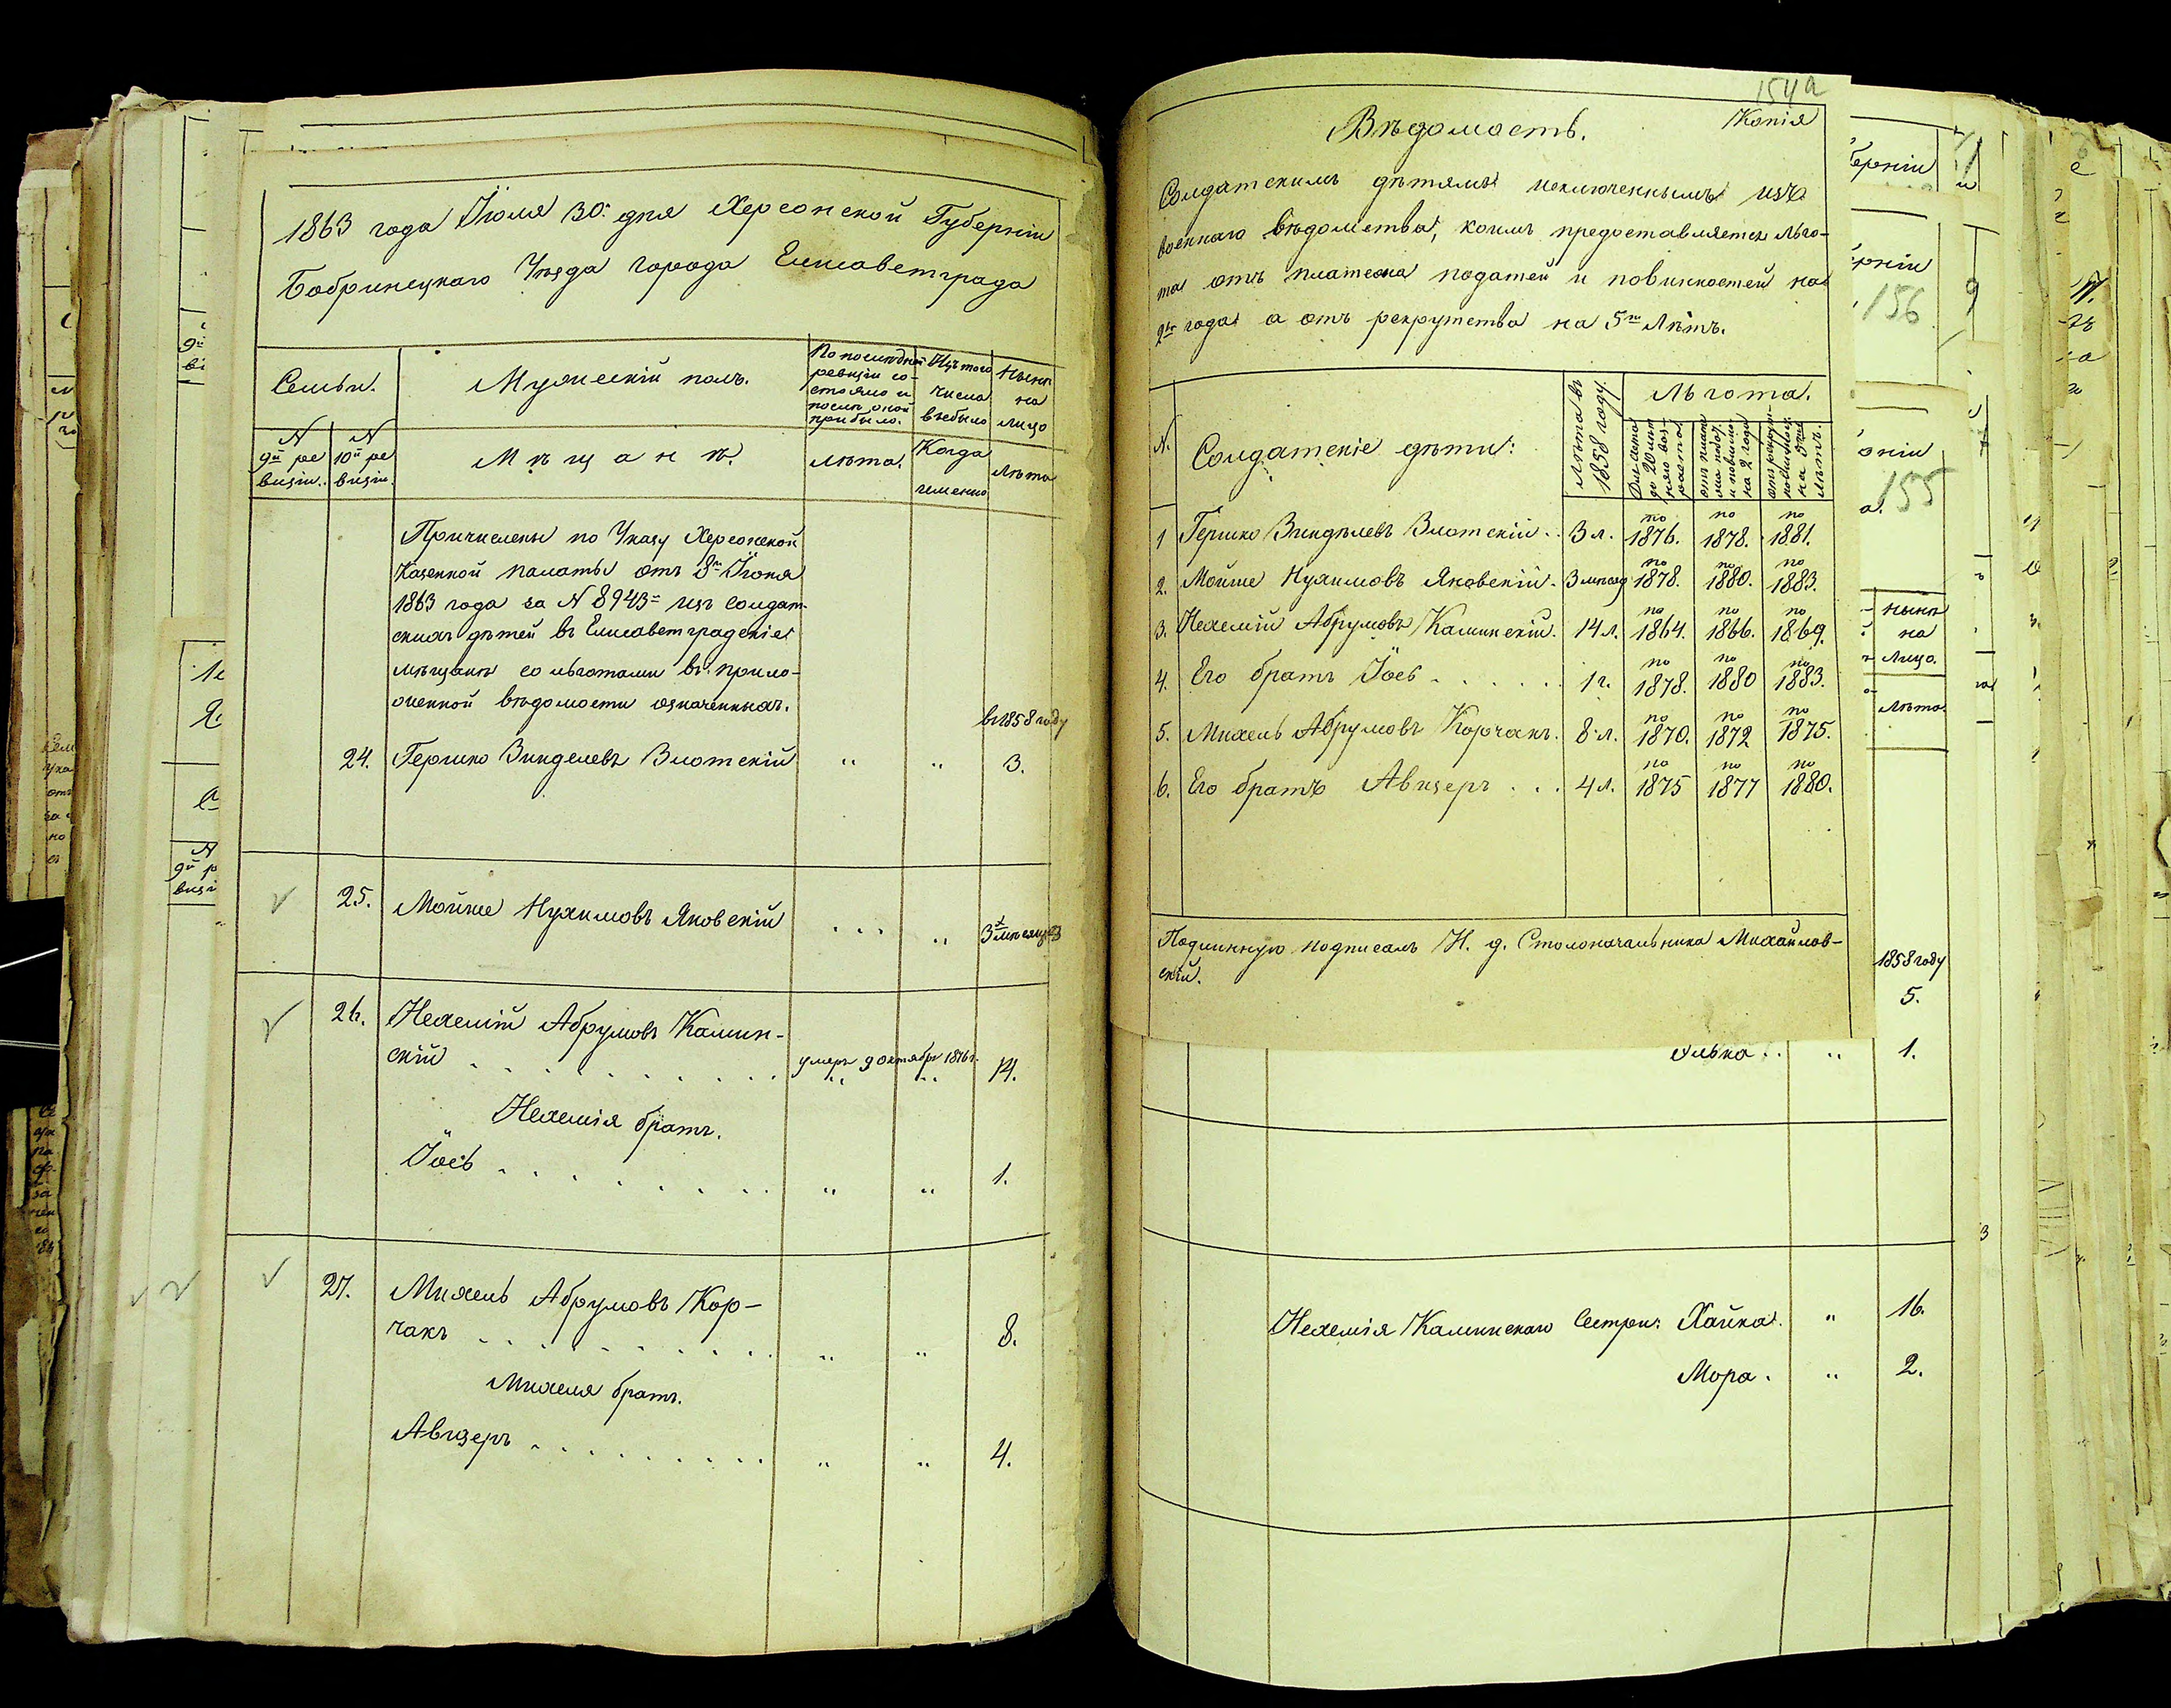 1863 года Іюля 30: дня Херсонской Губерніи
Бобринецкаго Уѣзда города Елисаветграда
Семьи.
Мужескій полъ.
По последней
ревизіи со-
стояло и
послѣ оной
прибыло.
Изъ того
числа
выбыло
Нынѣ
на
лицо
N
9й ре
визіи.
N
10й ре
визіи.
Мѣщанѣ.
Лѣта.
Когда
именно
Лѣта
Причислены по Указу Херсонской
Казенной палаты отъ 8го Іюня
1863 года за N 8943= изъ солдат-
скихъ дѣтей въ Елисаветградскіе
мѣщане со льготами въ прило-
женной вѣдомости означенныхъ.
въ 1858 году
24. Гершко Зинделевъ Злотскій " " 3.
25. Мойше Нухимовъ Яновскій ... " 3 мѣсяца
26. Нехемій Абрумовъ Камин-
скій умеръ 9 октябр 1876 г. 14.
Нехемія братъ.
Іось " " 1.
27. Михель Абрумовъ Кор-
чакъ " " 8.
Михеля братъ.
Авизеръ " " 4.
154а
Вѣдомость.
Копія
Солдатскимъ дѣтямъ исключеннымъ изъ
военнаго вѣдомства, коимъ предоставляется льго-
та отъ платежа податей и повинностей на
2ва года а отъ рекрутства на 5ть Лѣтъ.
N.
Солдатскіе дѣти:
Лѣта въ
1858 году.
Льгота.
до 20 лѣт
отъ плат
на 2 года
на 5ть
лѣтъ.
1 Гершко Зинделевъ Злотскій . . 3 л. по 1876. по 1878. по 1881.
2. Мойше Нухимовъ Яновскій . 3 мѣсяц по 1878. по 1880. по 1883.
3. Нехемій Абрумовъ Каминскій. 14 л. по 1864. по 1866. по 1869.
4. Его братъ Іось . . . . . . 1 г. по 1878. по 1880 по 1883.
5. Михель Абрумовъ Корчакъ. 8 л. по 1870. по 1872 по 1875.
6. Его братъ Авизеръ . . . 4 л. по 1875 по 1877 по 1880.
Подлинную подписалъ И. д. Столоначальника Михайлов-
скій.
156
155
Нынѣ
на
Лицо.
Лѣта.
1858 году
5.
" 1.
Нехемія Каминскаго Сестры: Хайка. " 16.
Мора. " 2.